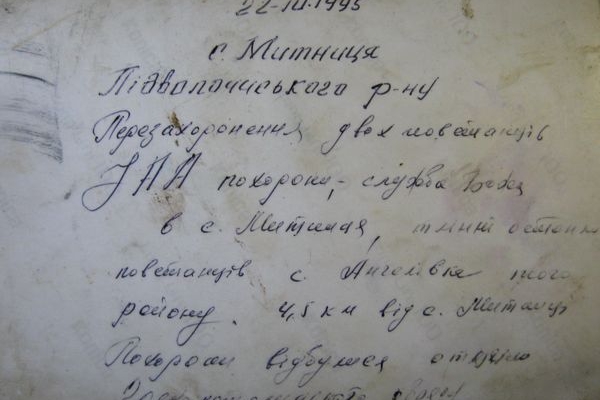 22-III.1995
с. Митниця
Підволочиського р-ну
Перезахоронення двох повстанців
УПА похорони, - служба Божа
в с. Митниця, тлінні останки
повстанців с. Ангелівка того
району. 4,5 км від с. Митниця
Похорони відбулися